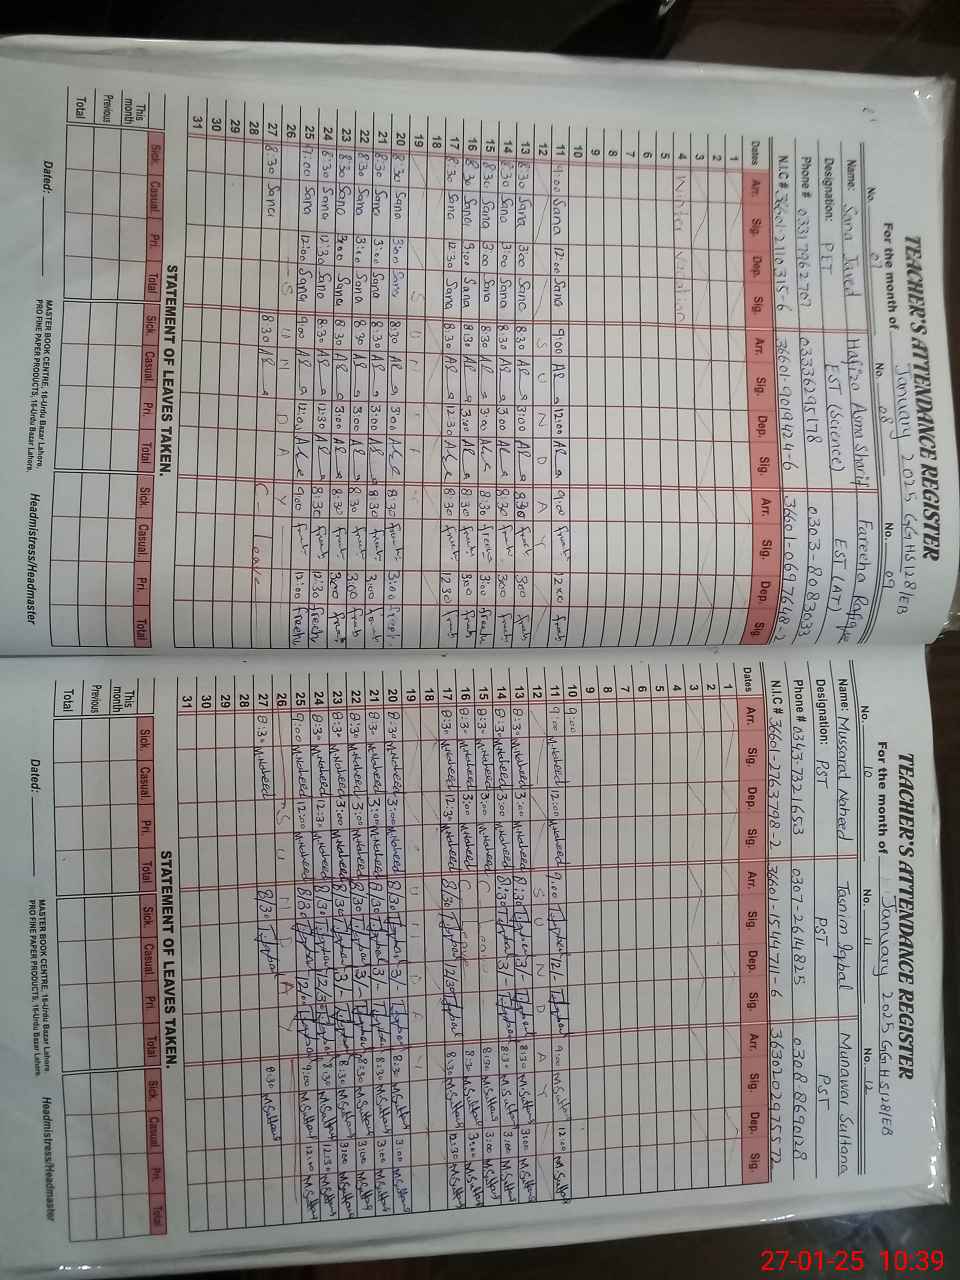 TEACHER'S ATTENDANCE REGISTER
For the month of January 2025 GGHS 128/EB
No. 07 No. 08 No. 09
Name: Sana Javed Hafiza Asma Sharif Fareeha Rafique
Designation: PET EST (Science) EST (AT)
Phone # 03317962707 03336295178 0303-8083033
N.I.C # 36601-2110315-6 36601-9019424-6 36601-0697648-2
Dates Arr. Sig. Dep. Sig. Arr. Sig. Dep. Sig. Arr. Sig. Dep. Sig.
1
2
3
4 Winter Vacation
5
6
7
8
9
10
11 9:00 Sana 12:00 Sana 9:00 12:00 9:00 12:00
12 SUNDAY
13 8:30 Sana 3:00 Sana 8:30 3:00 8:30 3:00
14 8:30 Sana 3:00 Sana 8:30 3:00 8:30 3:00
15 8:30 Sana 3:00 Sana 8:30 3:00 8:30 3:00
16 8:30 Sana 3:00 Sana 8:30 3:00 8:30 3:00
17 8:30 Sana 12:30 Sana 8:30 12:30 8:30 12:30
18
19 SUNDAY
20 8:30 Sana 3:00 Sana 8:30 3:00 8:30 3:00
21 8:30 Sana 3:00 Sana 8:30 3:00 8:30 3:00
22 8:30 Sana 3:00 Sana 8:30 3:00 8:30 3:00
23 8:30 Sana 3:00 Sana 8:30 3:00 8:30 3:00
24 8:30 Sana 12:30 Sana 8:30 12:30 8:30 12:30
25 9:00 Sana 12:00 Sana 9:00 12:00 9:00 12:00
26 SUNDAY
27 8:30 Sana 8:30 C-Leave
28
29
30
31
STATEMENT OF LEAVES TAKEN.
Sick. Casual. Pri. Total Sick. Casual. Pri. Total Sick. Casual. Pri. Total
This month
Previous
Total
Dated: Headmistress/Headmaster
MASTER BOOK CENTRE, 16-Urdu Bazar Lahore.
PRO FINE PAPER PRODUCTS, 16-Urdu Bazar Lahore.
TEACHER'S ATTENDANCE REGISTER
For the month of January 2025 GGHS 128/EB
No. 10 No. 11 No. 12
Name: Mussarat Naheed Tasnim Iqbal Munawar Sultana
Designation: PST PST PST
Phone # 0343-7321653 0307-2614825 0308-8690128
N.I.C # 36601-2763798-2 36601-1544711-6 3630202975572
Dates Arr. Sig. Dep. Sig. Arr. Sig. Dep. Sig. Arr. Sig. Dep. Sig.
1
2
3
4
5
6
7
8
9
10 9:00
11 9:00 M.Naheed 12:00 M.Naheed 9:00 T.Iqbal 12/- T.Iqbal 9:00 M.Sultana 12:00 M.Sultana
12 SUNDAY
13 8:30 M.Naheed 3:00 M.Naheed 8:30 T.Iqbal 3/- T.Iqbal 8:30 M.Sultana 3:00 M.Sultana
14 8:30 M.Naheed 3:00 M.Naheed 8:30 T.Iqbal 3/- T.Iqbal 8:30 M.Sultana 3:00 M.Sultana
15 8:30 M.Naheed 3:00 M.Naheed C 8:30 M.Sultana 3:00 M.Sultana
16 8:30 M.Naheed 3:00 M.Naheed C 8:30 M.Sultana 3:00 M.Sultana
17 8:30 M.Naheed 12:30 M.Naheed 8/30 T.Iqbal 12/30 T.Iqbal 8:30 M.Sultana 12:30 M.Sultana
18
19 SUNDAY
20 8:30 M.Naheed 3:00 M.Naheed 8/30 T.Iqbal 3/- T.Iqbal 8:30 M.Sultana 3:00 M.Sultana
21 8:30 M.Naheed 3:00 M.Naheed 8/30 T.Iqbal 3/- T.Iqbal 8:30 M.Sultana 3:00 M.Sultana
22 8:30 M.Naheed 3:00 M.Naheed 8/30 T.Iqbal 3/- T.Iqbal 8:30 M.Sultana 3:00 M.Sultana
23 8:30 M.Naheed 3:00 M.Naheed 8/30 T.Iqbal 3/- T.Iqbal 8:30 M.Sultana 3:00 M.Sultana
24 8:30 M.Naheed 12:30 M.Naheed 8/30 T.Iqbal 12/30 T.Iqbal 8:30 M.Sultana 12:30 M.Sultana
25 9:00 M.Naheed 12:00 M.Naheed T.Iqbal 12/00 T.Iqbal 9:00 M.Sultana 12:00 M.Sultana
26 SUNDA
27 8:30 M.Naheed 8/30 T.Iqbal 8:30 M.Sultana
28
29
30
31
STATEMENT OF LEAVES TAKEN.
Sick. Casual. Pri. Total Sick. Casual. Pri. Total Sick. Casual Pri. Total
This month
Previous
Total
Dated: Headmistress/Headmaster
MASTER BOOK CENTRE, 16-Urdu Bazar Lahore.
PRO FINE PAPER PRODUCTS, 16-Urdu Bazar Lahore.
27-01-25 10:39